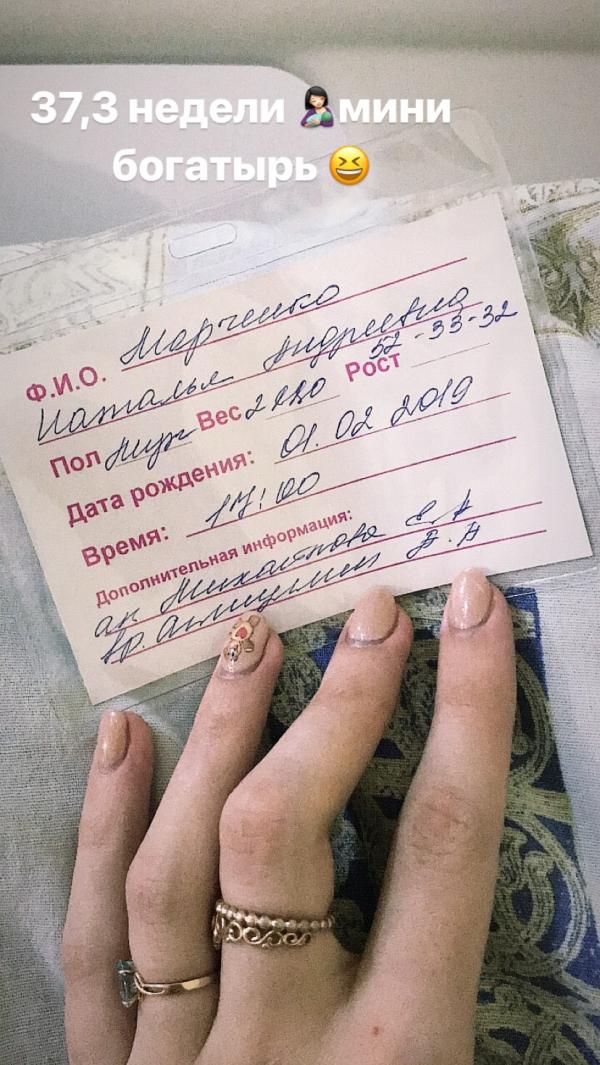 37,3 недели 🤱🏻мини
богатырь 😆
Ф.И.О. Марченко
Наталья Андреевна
Пол муж Вес Рост 52-33-32
Дата рождения: 01.02 2019
Время: 17:00
Дополнительная информация:
ак.
вр.